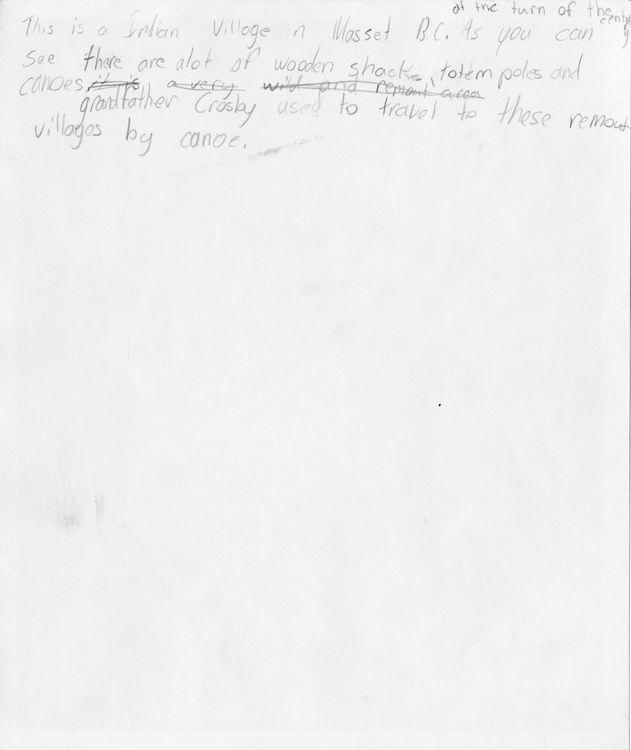 at the turn of the century
This is a Indian Village in Masset BC. As you can
See there are alot of wooden shacks, totem poles and
canoes. it is a very wild and remout area
grandfather Crosby used to travel to these remout
villages by canoe.